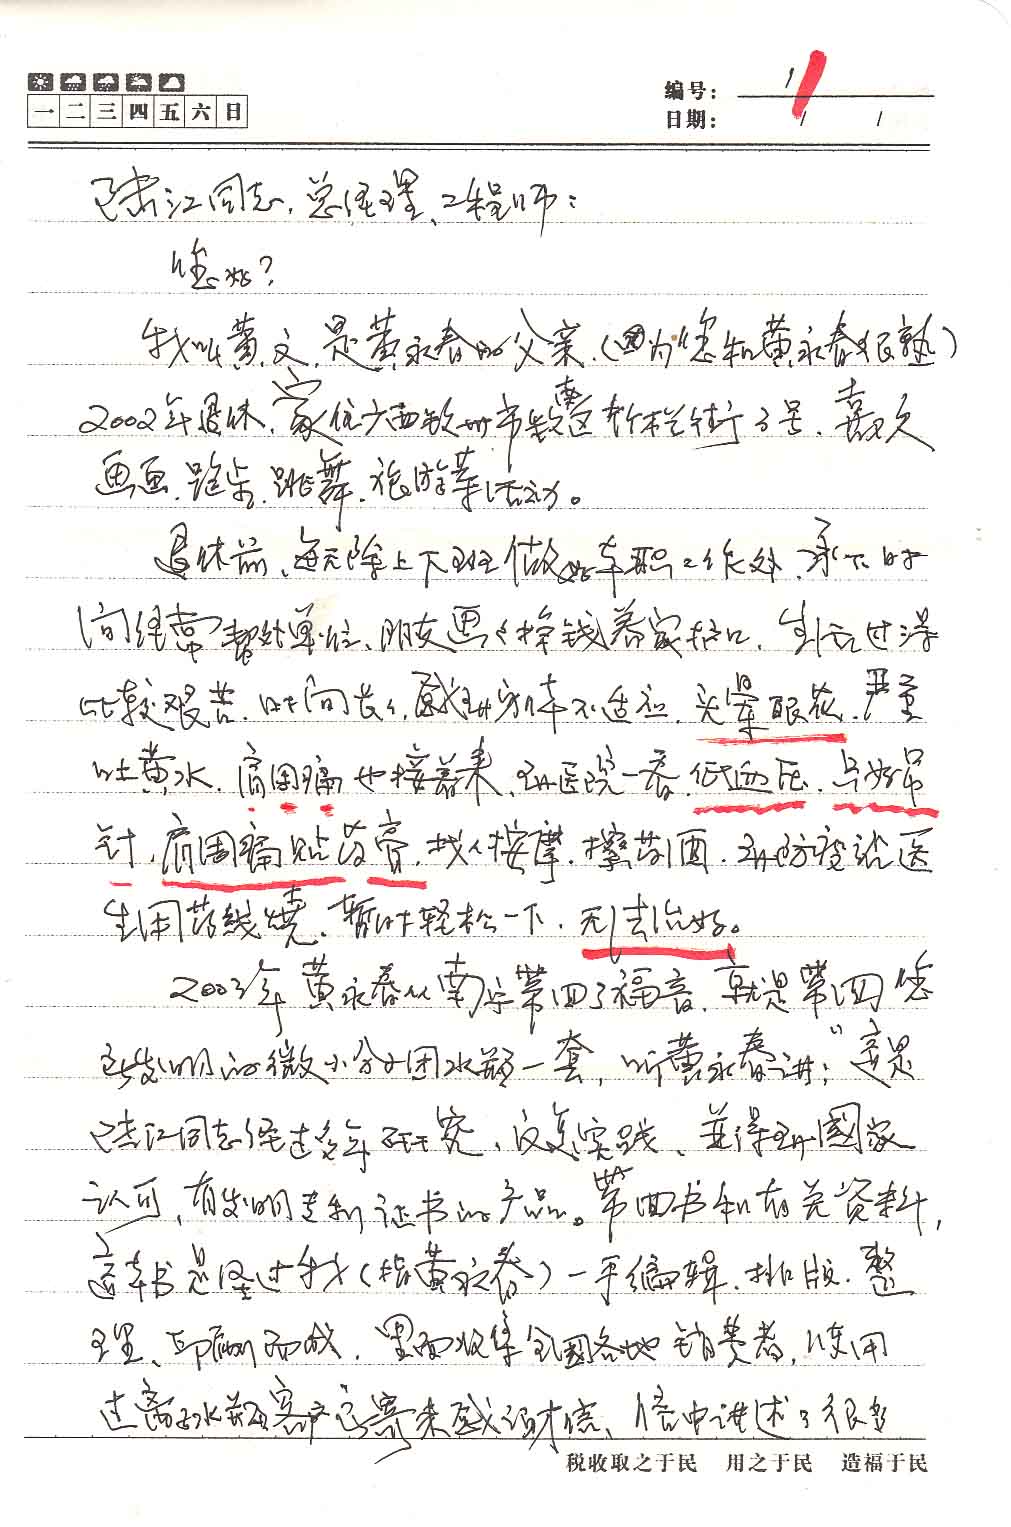 一 二 三 四 五 六 日
编号: 1
日期: / /
陆江同志、总经理、工程师:
您好?
我叫黄文,是黄永春的父亲,(因为您和黄永春很熟)
2002年退休,家住广西钦州市钦南区竹栏街3号,喜欢
画画、跳舞、旅游等活动。
退休前,每天除上下班做好本职工作外,余下时
间经常帮处单位、朋友画画挣钱养家护口,生活过得
比较艰苦,时间长了,感到身体不适应,头晕眼花,严重
吐黄水,肩周痛也接着来,到医院一查,低血压,只好吊
针,肩周痛贴药膏,找人按摩,擦药酒,到防疫站医
生用药线烧,暂时轻松一下,无法治好。
2003年黄永春从南宁带回了福音,就是带回您
发明的微小分子团水瓶一套,听黄永春讲:"这是
陆江同志经过多年研究、反复实践、并得到国家
认可,有发明专利证书的产品。带回书和有关资料,
这本书是经过我(指黄永春)一手编辑、排版、整
理、印刷而成,里面收集全国各地消费者,使用
过离子水瓶客户寄来感谢信,信中讲述了很多
税收取之于民 用之于民 造福于民